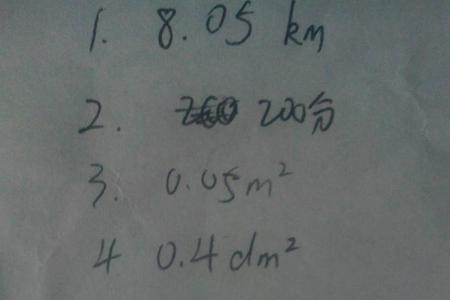 1. 8.05 km
2. 200分
3. 0.05m²
4 0.4dm²